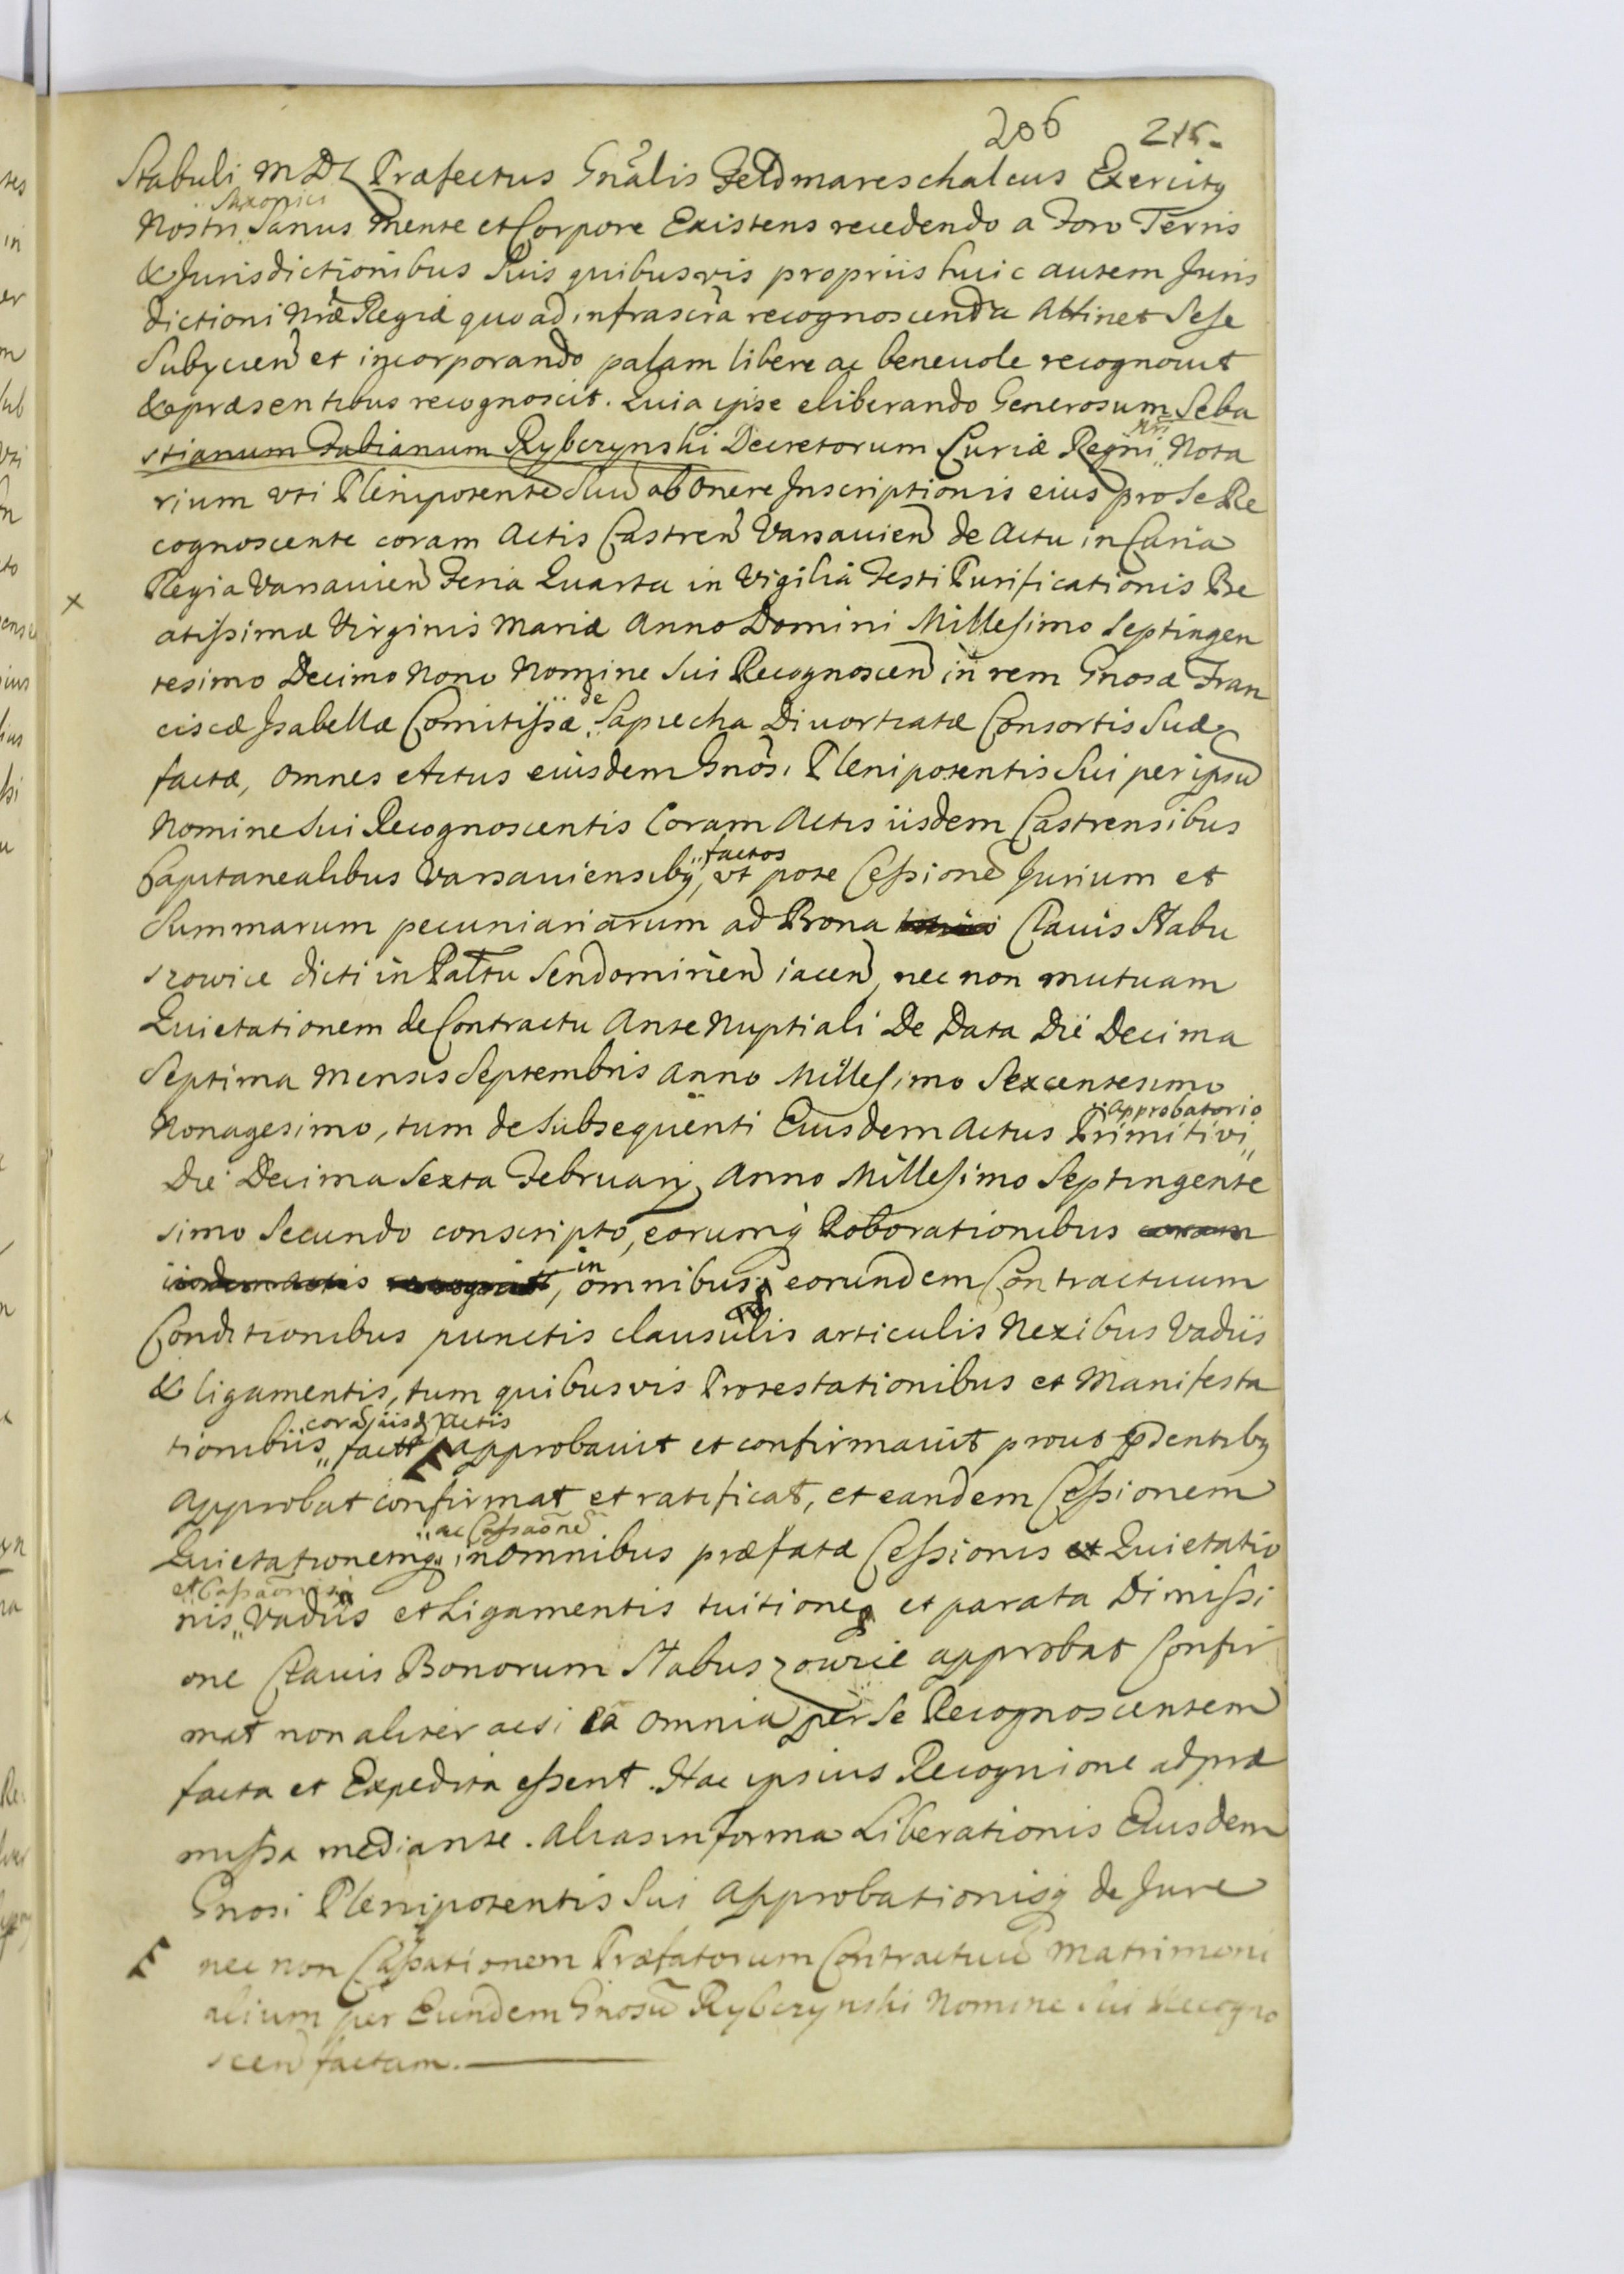 206 215.
Stabuli MDL Præfectus Gnãlis Feldmareschalcus Exercitg
Saxonici
Nostri Sanus mente et Corpore Existens recedendo a Foro Terris
& Jurisdictionibus Suis quibusvis propriis huic autem Juris
dictioni Nræ Regiæ quoad infrascrã recognoscenda Attinet Sese
Subycien et incorporando palam libere ac beneuole recognouit
& præsentibus recognoscit. Quia ipse eliberando Generosum Seba
Nri
stianum Fabianum Rybczynski Decretorum Curiæ Regni Nota
rium uti Plenipotente Suũ ab Onere Inscriptionis eius pro Se Re
cognoscente coram Actis Castren Varsauien de Actu in Curia
Regia Varsauien Feria Quarta in Vigiliâ Festi Purificationis Be
x
atissimæ Virginis Mariæ Anno Domini Millesimo Septingen
tesimo Decimo Nono Nomine Sui Recognoscen in rem Gnosæ Fran
de
ciscæ Isabellæ Comitissæ Sapiecha Divortiatæ Consortis Suæ
factæ, omnes Actus eiusdem Gnosi Plenipotentis Sui per ipsũ
Nomine Sui Recognoscentis Coram Actis iisdem Castrensibus
factos
Capitanealibus Varsauiensibg, ut pote Cessione Jurium et
Summarum pecuniariarum ad Bona Clauis Stabu
szowice dicti in Paltu Sendomirien iacen, nec non mutuam
Quietationem de Contractu Ante Nuptiali De Data Die Decima
Septima Mensis Septembris Anno Millesimo Sexcentesimo
Approbatorio
Nonagesimo, tum de Subsequenti Eiusdem Actus Primitivi
Die Decima Sexta Februarij Anno Millesimo Septingente
simo Secundo conscripto, eorumq Roborationibus coram
in
iisdem Actis, omnibus eorundem Contractuum
Conditionibus punctis clausulis articulis Nexibus Vadiis
& ligamentis, tum quibusvis Protestationibus et Manifesta
corã iisd Actis
tionibus approbauit et confirmauit prout pdentibg
Approbat confirmat et ratificat, et eandem Cessionem
ac Cassaõne
Quietationemq in Omnibus præfatæ Cessionis et Quietatio
et Cassaõnis
nis Vadiis et Ligamentis tuitioneq et parata Dimissi
one Clauis Bonorum Stabuszowice approbat Confir
mat non aliter acsi ea omnia per Se Recognoscentem
facta et Expedita essent. Hac ipsius Recognione ad præ
missa mediante. Alias in forma Liberationis Eiusdem
Gnosi Plenipotentis Sui Approbationisq de Jure
nec non Cassationem Præfatorum Contractuũ Matrimoni
alium per Eundem Gnosũ Rybczynski Nomine Sui Recogno
scen factam.